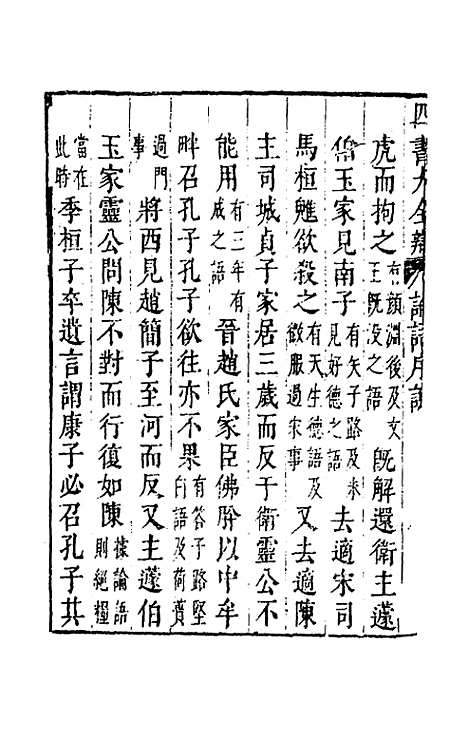 四書大全辯 論語序說
虎而拘之有顔淵後及文王既没之語既解還衛主蘧
伯玉家見南子有矢子路及未見好德之語去適宋司
馬桓魋欲殺之有天生德語及微服過宋事又去適陳
主司城貞子家居三歲而反于衛靈公不
能用有三年有成之語晉趙氏家臣佛肸以中牟
畔召孔子孔子欲往亦不果有答子路堅白語及荷蕢
過門事將西見趙簡子至河而反又主蘧伯
玉家靈公問陳不對而行復如陳據論語則絕糧
當在此時季桓子卒遺言謂康子必召孔子其